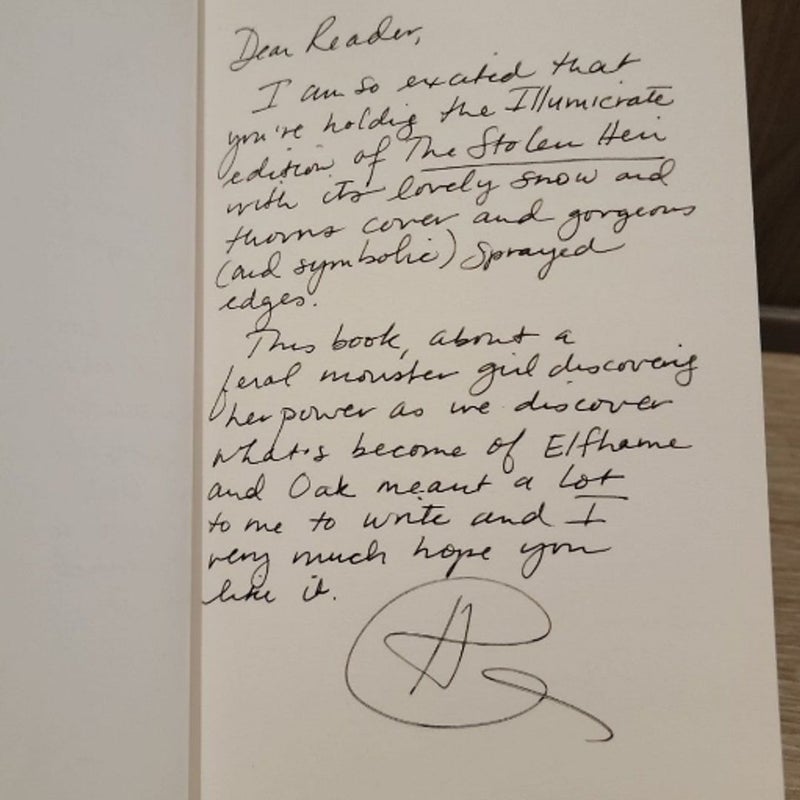 Dear Reader,
I am so excited that
you're holding the Illumicrate
edition of The Stolen Heir
with its lovely snow and
thorns cover and gorgeous
(and symbolic) sprayed
edges.
This book, about a
feral monster girl discovering
her power as we discover
what's become of Elfhame
and Oak meant a lot
to me to write and I
very much hope you
like it.